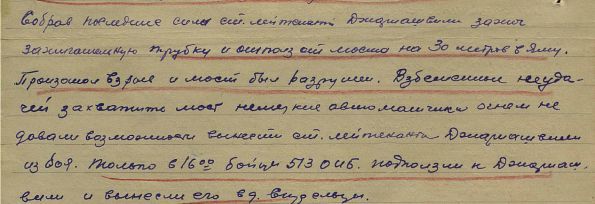 Собрав последние силы ст. лейтенант Джариашвили зажег
зажигательную трубку и отполз от моста на 30 метров в яму.
Произошел взрыв и мост был разрушен. Взбешенные неуда-
чей захватить мост немецкие автоматчики огнем не
давали возможности вынести ст. лейтенанта
из боя. Только в 16 00 бойцы 513 ОИБ. подползли к
вили и вынесли его в д.